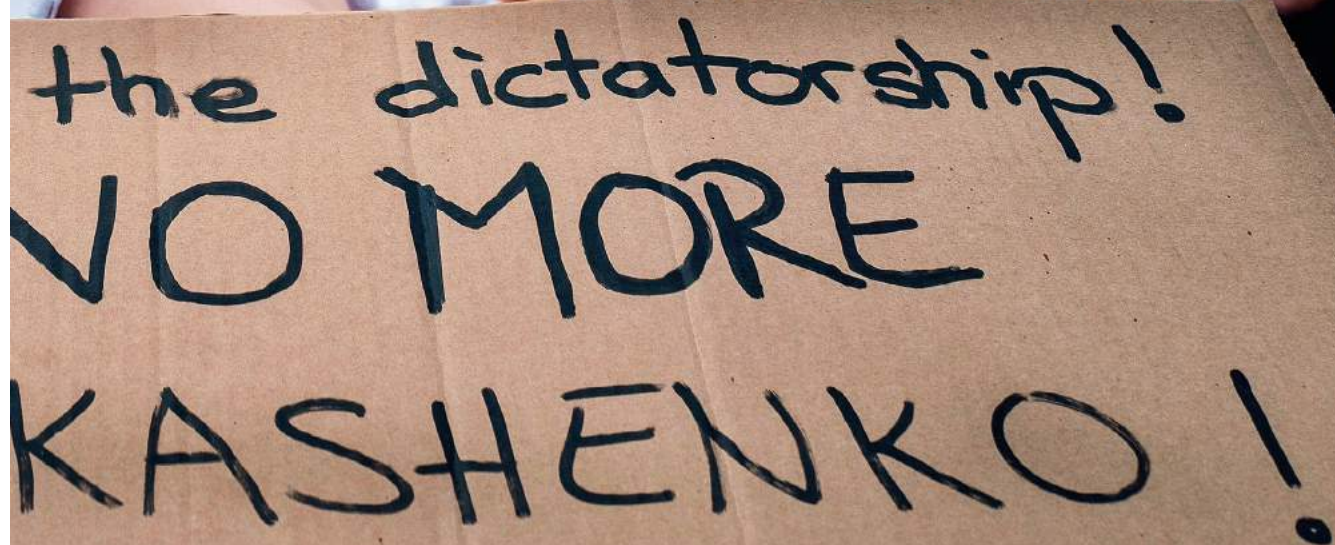 the dictatorship!
NO MORE
KASHENKO!